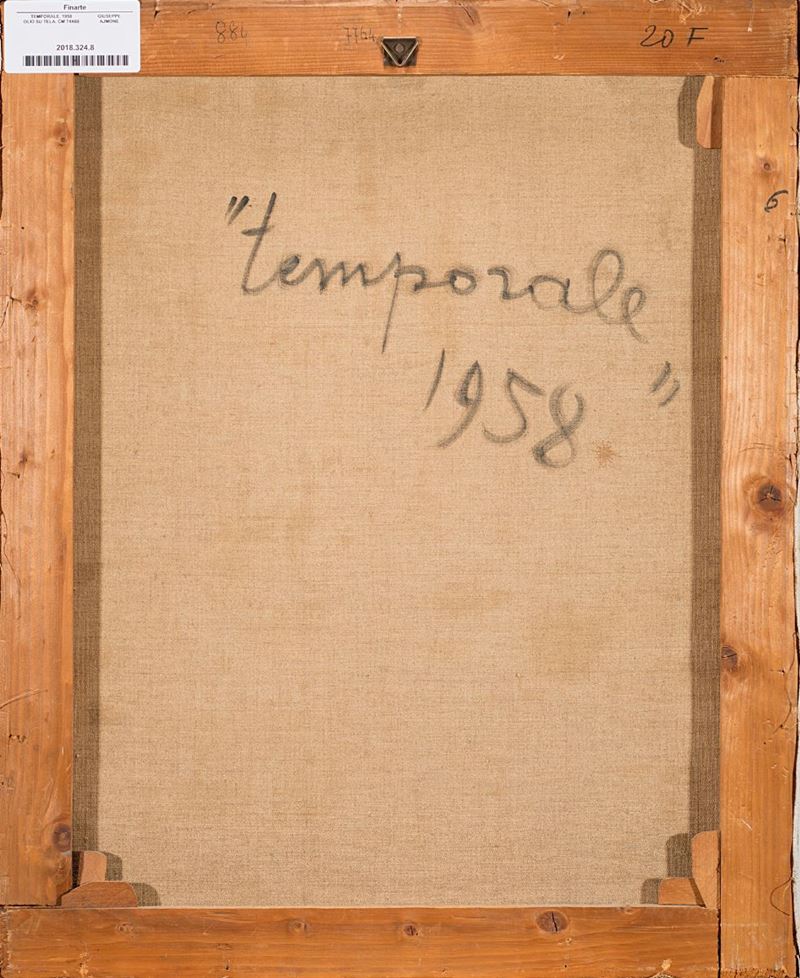 Finarte
TEMPORALE, 1958 GIUSEPPE
OLIO SU TELA, CM 74X60 AJMONE
2018.324.8
884 7764 20 F
6
"temporale
1958. "